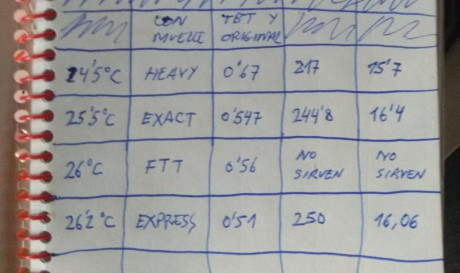 CON MUELLE
TBT Y ORIGINAL
24'5°C HEAVY 0'67 217 15'7
25'5°C EXACT 0'547 244'8 16'4
26°C FTT 0'56 NO SIRVEN NO SIRVEN
26'2°C EXPRESS 0'51 250 16,06